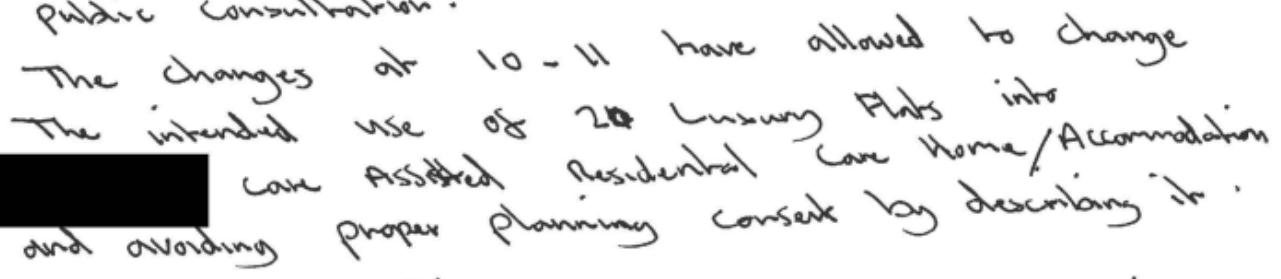 Public Consultation.
The changes at 10-11 have allowed to change
The intended use of 20 Luxury Flats into
care Assisted Residential Care Home/Accommodation
and avoiding proper planning consent by describing it.